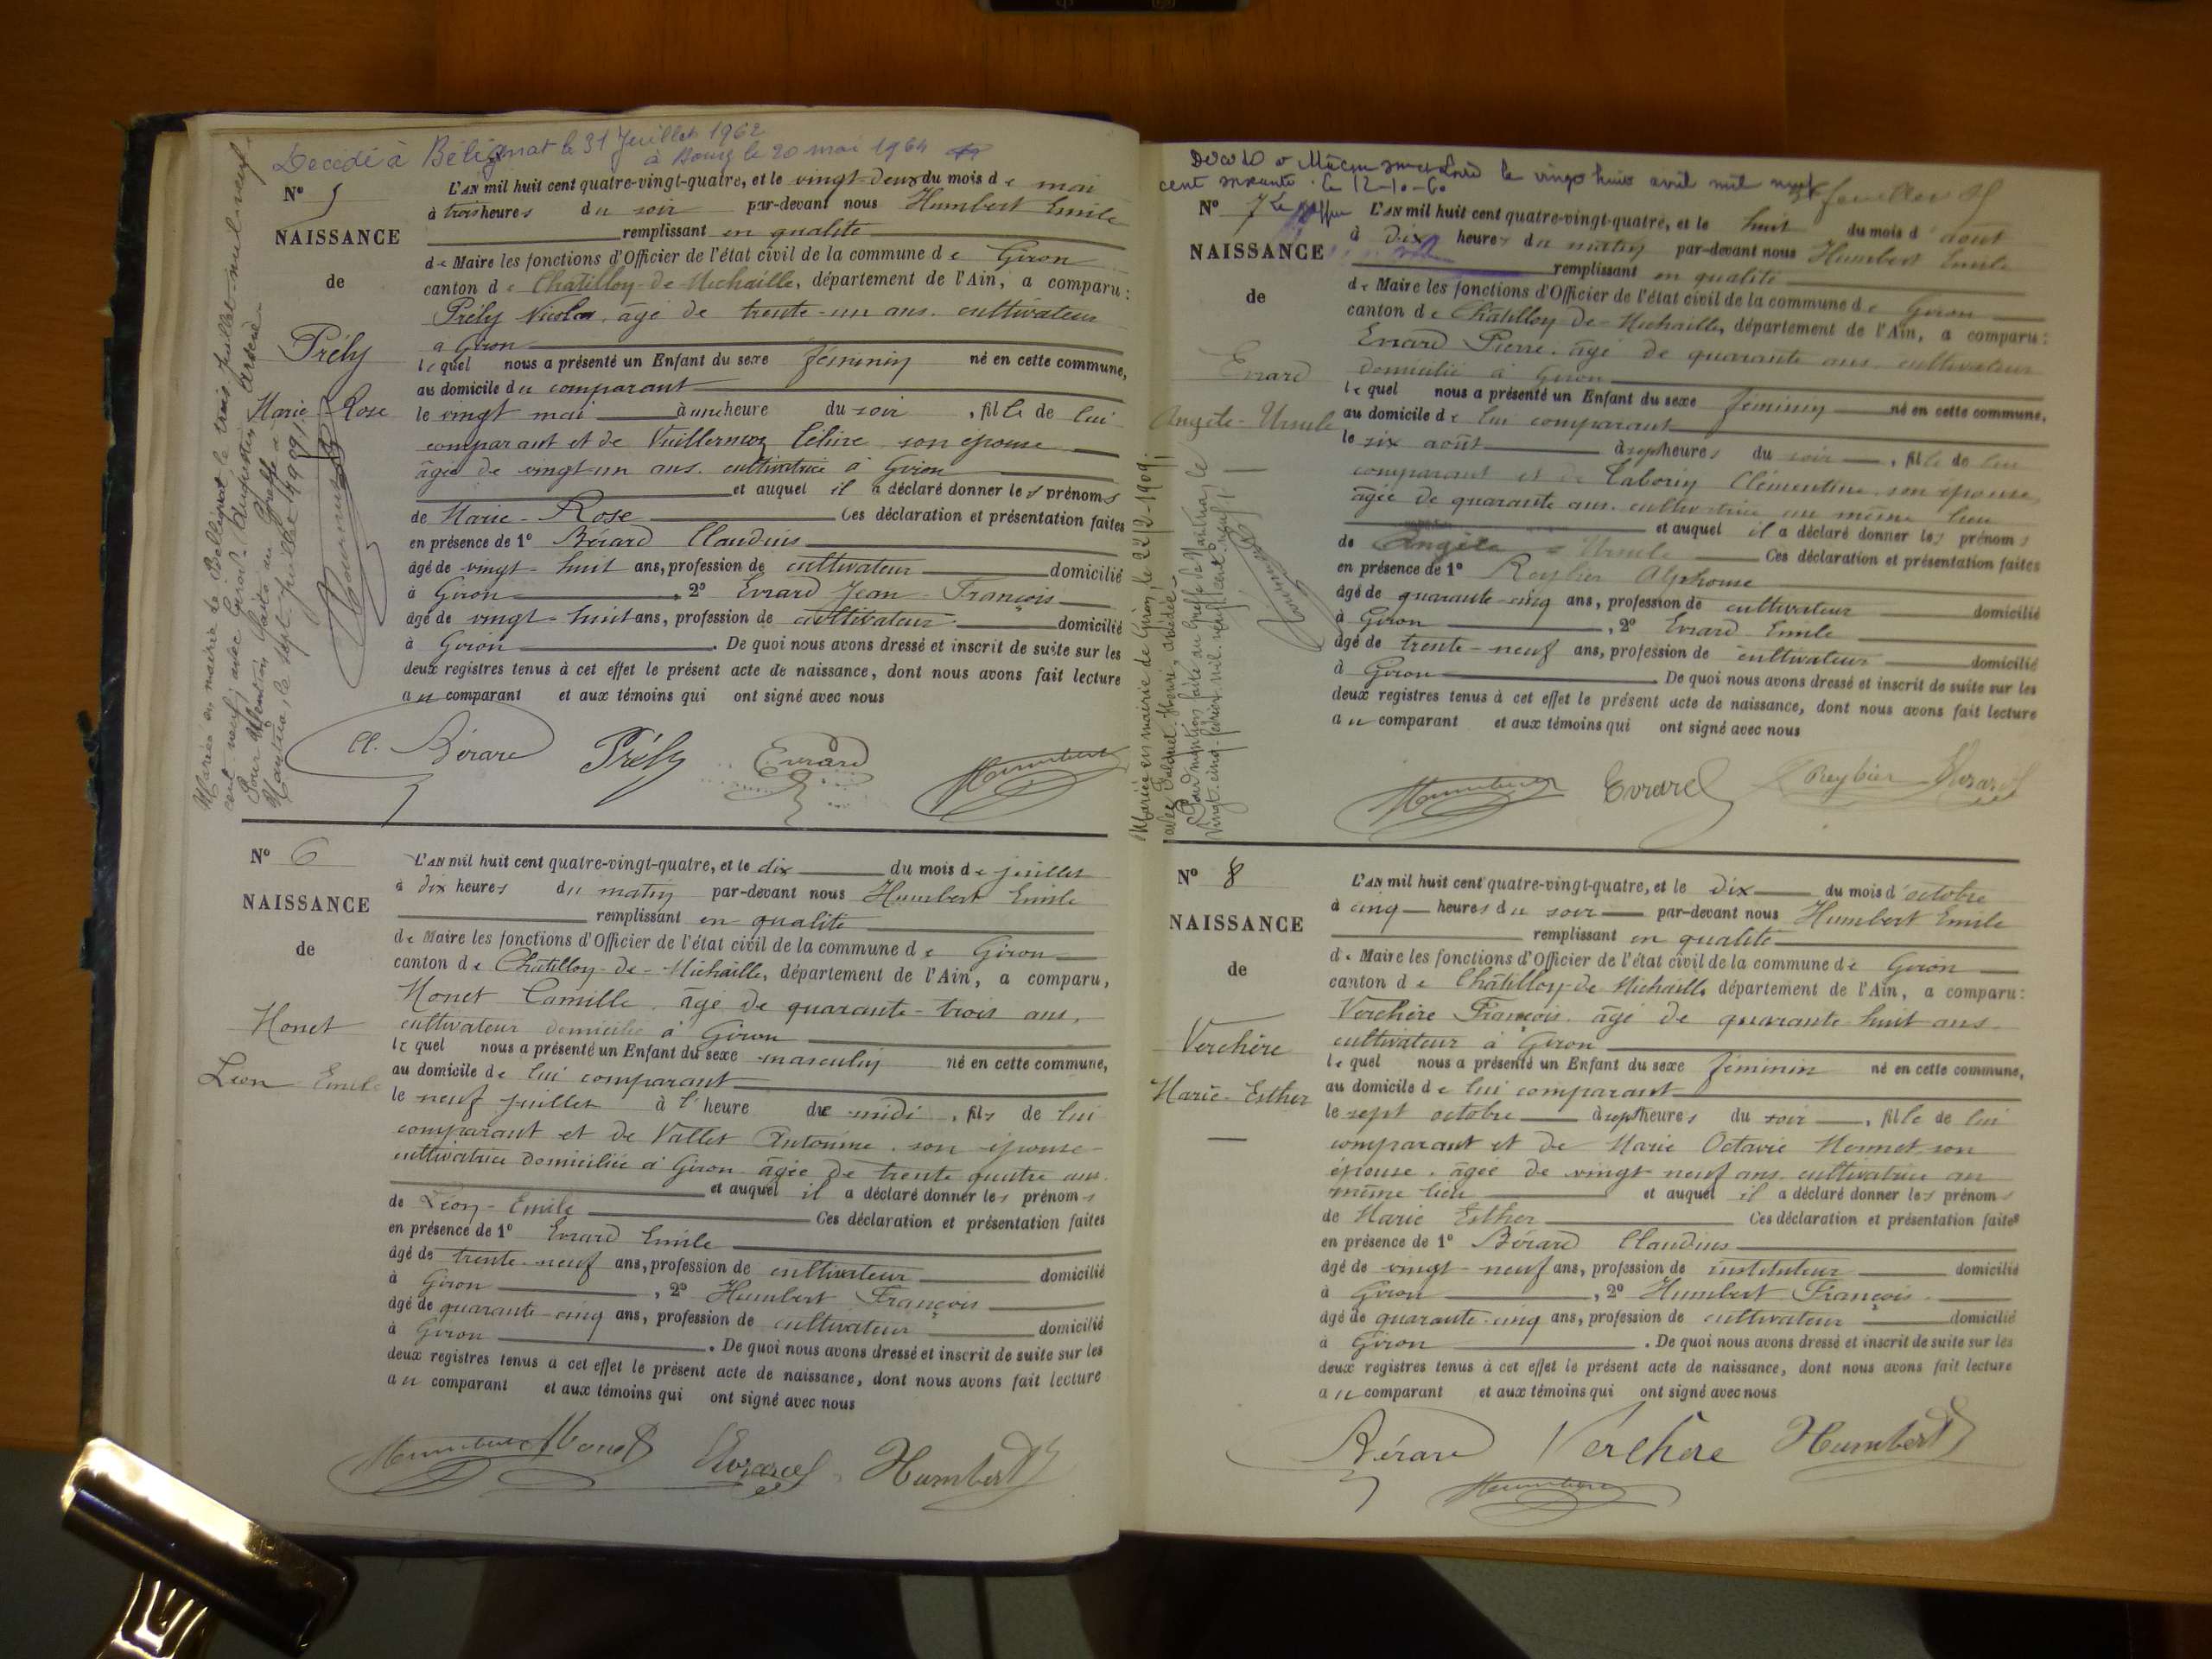 Decédé à Bélignat le 31 Juillet 1962
à Bourg le 20 mai 1964
N° 5
NAISSANCE
de
Prély
Marie-Rose
Mariée en mairie de Bellignat le trois juillet mil neuf
cent neuf, avec Girod Augustin Arsène.
Pour Mention faite au Greffe à
Nantua, le sept juillet 1909.
L'AN mil huit cent quatre-vingt-quatre, et le vingt-deux du mois de mai
à trois heures du soir par-devant nous Humbert Emile
remplissant en qualité
de Maire les fonctions d'Officier de l'état civil de la commune de Giron
canton de Châtillon-de-Michaille, département de l'Ain, a comparu :
Prély Nicolas âgé de trente-un ans. cultivateur
à Giron
lequel nous a présenté un Enfant du sexe féminin né en cette commune,
au domicile du comparant
le vingt mai à une heure du soir, fille de lui
comparant et de Vuillermoz Céline son épouse
âgée de vingt-un ans. cultivatrice à Giron
et auquel il a déclaré donner les prénoms
de Marie-Rose Ces déclaration et présentation faites
en présence de 1° Bérard Claudius
âgé de vingt-huit ans, profession de cultivateur domicilié
à Giron, 2° Evrard Jean-François
âgé de vingt-huit ans, profession de cultivateur domicilié
à Giron. De quoi nous avons dressé et inscrit de suite sur les
deux registres tenus à cet effet le présent acte de naissance, dont nous avons fait lecture
au comparant et aux témoins qui ont signé avec nous
Cl. Bérard Prély Evrard Humbert
N° 6
NAISSANCE
de
Monet
Léon Emile
L'AN mil huit cent quatre-vingt-quatre, et le dix du mois de juillet
à dix heures du matin par-devant nous Humbert Emile
remplissant en qualité
de Maire les fonctions d'Officier de l'état civil de la commune de Giron
canton de Châtillon-de-Michaille, département de l'Ain, a comparu,
Monet Camille âgé de quarante-trois ans,
cultivateur domicilié à Giron
lequel nous a présenté un Enfant du sexe masculin né en cette commune,
au domicile de lui comparant
le neuf juillet à l'heure de midi, fils de lui
comparant et de Vallet Antonine. son épouse
cultivatrice domiciliée à Giron âgée de trente quatre ans.
et auquel il a déclaré donner les prénoms
de Léon-Emile Ces déclaration et présentation faites
en présence de 1° Evrard Emile
âgé de trente-neuf ans, profession de cultivateur domicilié
à Giron, 2° Humbert François
âgé de quarante-cinq ans, profession de cultivateur domicilié
à Giron. De quoi nous avons dressé et inscrit de suite sur les
deux registres tenus à cet effet le présent acte de naissance, dont nous avons fait lecture
au comparant et aux témoins qui ont signé avec nous
Humbert Monet Evrard Humbert
le vingt huit avril mil neuf
cent soixante. le 12-10-60
feuillet
N° 7
NAISSANCE
de
Evrard
Angèle-Ursule
Mariée en mairie de Giron, le 22/2-1909,
avec
Pour mention faite au greffe de Nantua, le
vingt-cinq février mil neuf cent neuf.
L'AN mil huit cent quatre-vingt-quatre, et le huit du mois d'août
à dix heures du matin par-devant nous Humbert Emile
remplissant en qualité
de Maire les fonctions d'Officier de l'état civil de la commune de Giron
canton de Châtillon-de-Michaille, département de l'Ain, a comparu :
Evrard Pierre. âgé de quarante ans cultivateur
domicilié à Giron
lequel nous a présenté un Enfant du sexe féminin né en cette commune,
au domicile de lui comparant
le six août à sept heures du soir, fille de lui
comparant et de Taborin Clémentine. son épouse,
âgée de quarante ans. cultivatrice au même lieu
et auquel il a déclaré donner les prénoms
de Angèle-Ursule Ces déclaration et présentation faites
en présence de 1° Reybier Alphonse
âgé de quarante-cinq ans, profession de cultivateur domicilié
à Giron, 2° Evrard Emile
âgé de trente-neuf ans, profession de cultivateur domicilié
à Giron. De quoi nous avons dressé et inscrit de suite sur les
deux registres tenus à cet effet le présent acte de naissance, dont nous avons fait lecture
au comparant et aux témoins qui ont signé avec nous
Humbert Evrard Reybier Evrard
N° 8
NAISSANCE
de
Verchère
Marie-Esther
L'AN mil huit cent quatre-vingt-quatre, et le dix du mois d'octobre
à cinq heures du soir par-devant nous Humbert Emile
remplissant en qualité
de Maire les fonctions d'Officier de l'état civil de la commune de Giron
canton de Châtillon-de-Michaille département de l'Ain, a comparu :
Verchère François. âgé de quarante-huit ans
cultivateur à Giron
lequel nous a présenté un Enfant du sexe féminin né en cette commune,
au domicile de lui comparant
le sept octobre à sept heures du soir, fille de lui
comparant et de Marie Octavie Monnet son
épouse. âgée de vingt-neuf ans. cultivatrice au
même lieu et auquel il a déclaré donner les prénoms
de Marie Esther Ces déclaration et présentation faites
en présence de 1° Bérard Claudius
âgé de vingt-neuf ans, profession de instituteur domicilié
à Giron, 2° Humbert François.
âgé de quarante-cinq ans, profession de cultivateur domicilié
à Giron. De quoi nous avons dressé et inscrit de suite sur les
deux registres tenus à cet effet le présent acte de naissance, dont nous avons fait lecture
au comparant et aux témoins qui ont signé avec nous
Bérard Verchère Humbert
Humbert